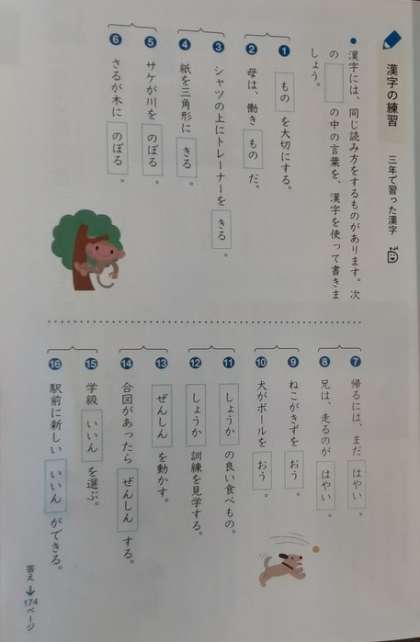 漢字の練習
三年で習った漢字
● 漢字には、同じ読み方をするものがあります。次
の　　の中の言葉を、漢字を使って書きま
しょう。
1 ものを大切にする。
2 母は、働きものだ。
3 シャツの上にトレーナーをきる。
4 紙を三角形にきる。
5 サケが川をのぼる。
6 さるが木にのぼる。
7 帰るには、まだはやい。
8 兄は、走るのがはやい。
9 ねこがきずをおう。
10 犬がボールをおう。
11 しょうかの良い食べもの。
12 しょうか訓練を見学する。
13 ぜんしんを動かす。
14 合図があったらぜんしんする。
15 学級いいんを選ぶ。
16 駅前に新しいいいんができる。
答え➡174ページ